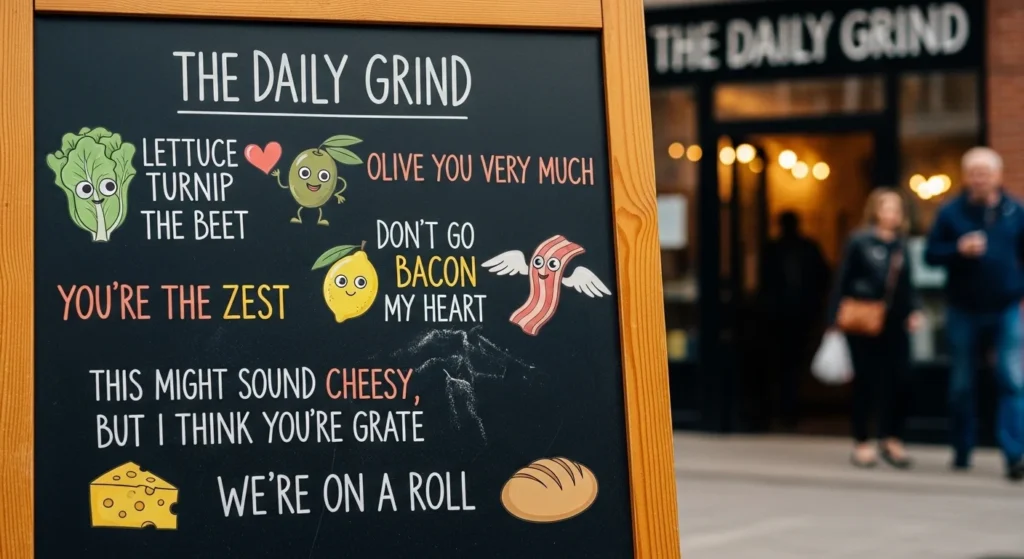 THE DAILY GRIND
LETTUCE
TURNIP
THE BEET
OLIVE YOU VERY MUCH
DON'T GO
BACON
MY HEART
YOU'RE THE ZEST
THIS MIGHT SOUND CHEESY,
BUT I THINK YOU'RE GRATE
WE'RE ON A ROLL
THE DAILY GRIND